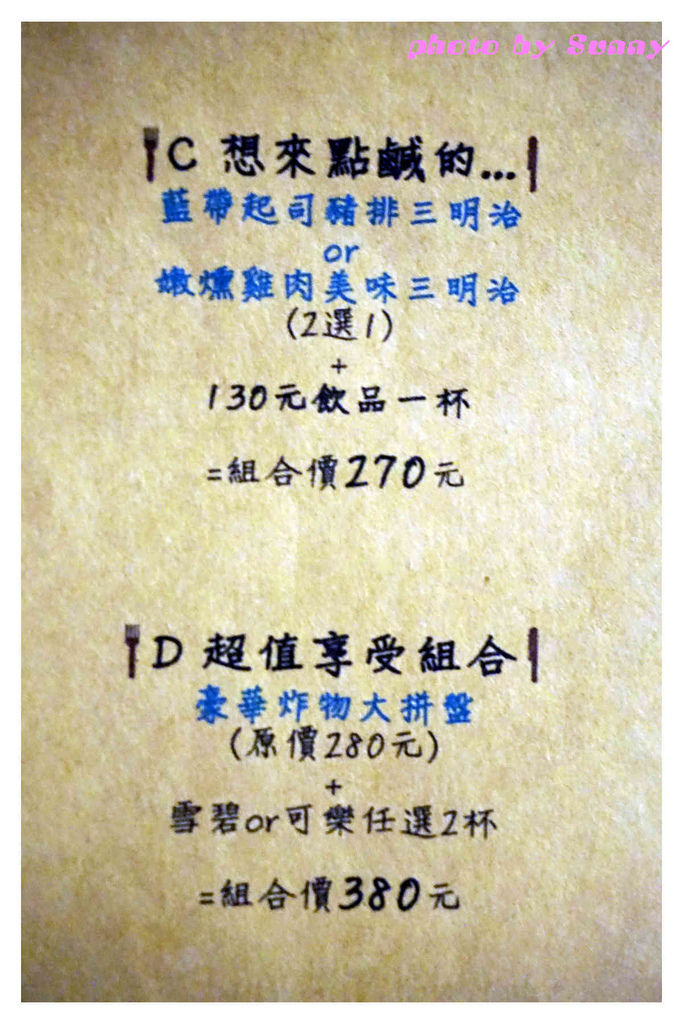 photo by Svaay
C 想來點鹹的...
藍帶起司豬排三明治
or
嫩燻雞肉美味三明治
(2選1)
+
130元飲品一杯
=組合價270元
D 超值享受組合
豪華炸物大拼盤
(原價280元)
+
雪碧or可樂任選2杯
=組合價380元